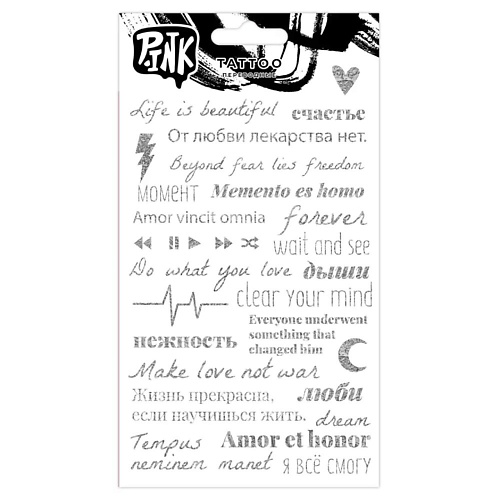 PINK
TATTOO
ПЕРЕВОДНЫЕ
Life is beautiful счастье
От любви лекарства нет.
Beyond fear lies freedom
момент Memento es homo
Amor vincit omnia forever
wait and see
Do what you love дыши
clear your mind
Everyone underwent
something that
changed him
нежность
Make love not war
Жизнь прекрасна, люби
если научишься жить. dream
Tempus Amor et honor
neminem manet я всё смогу